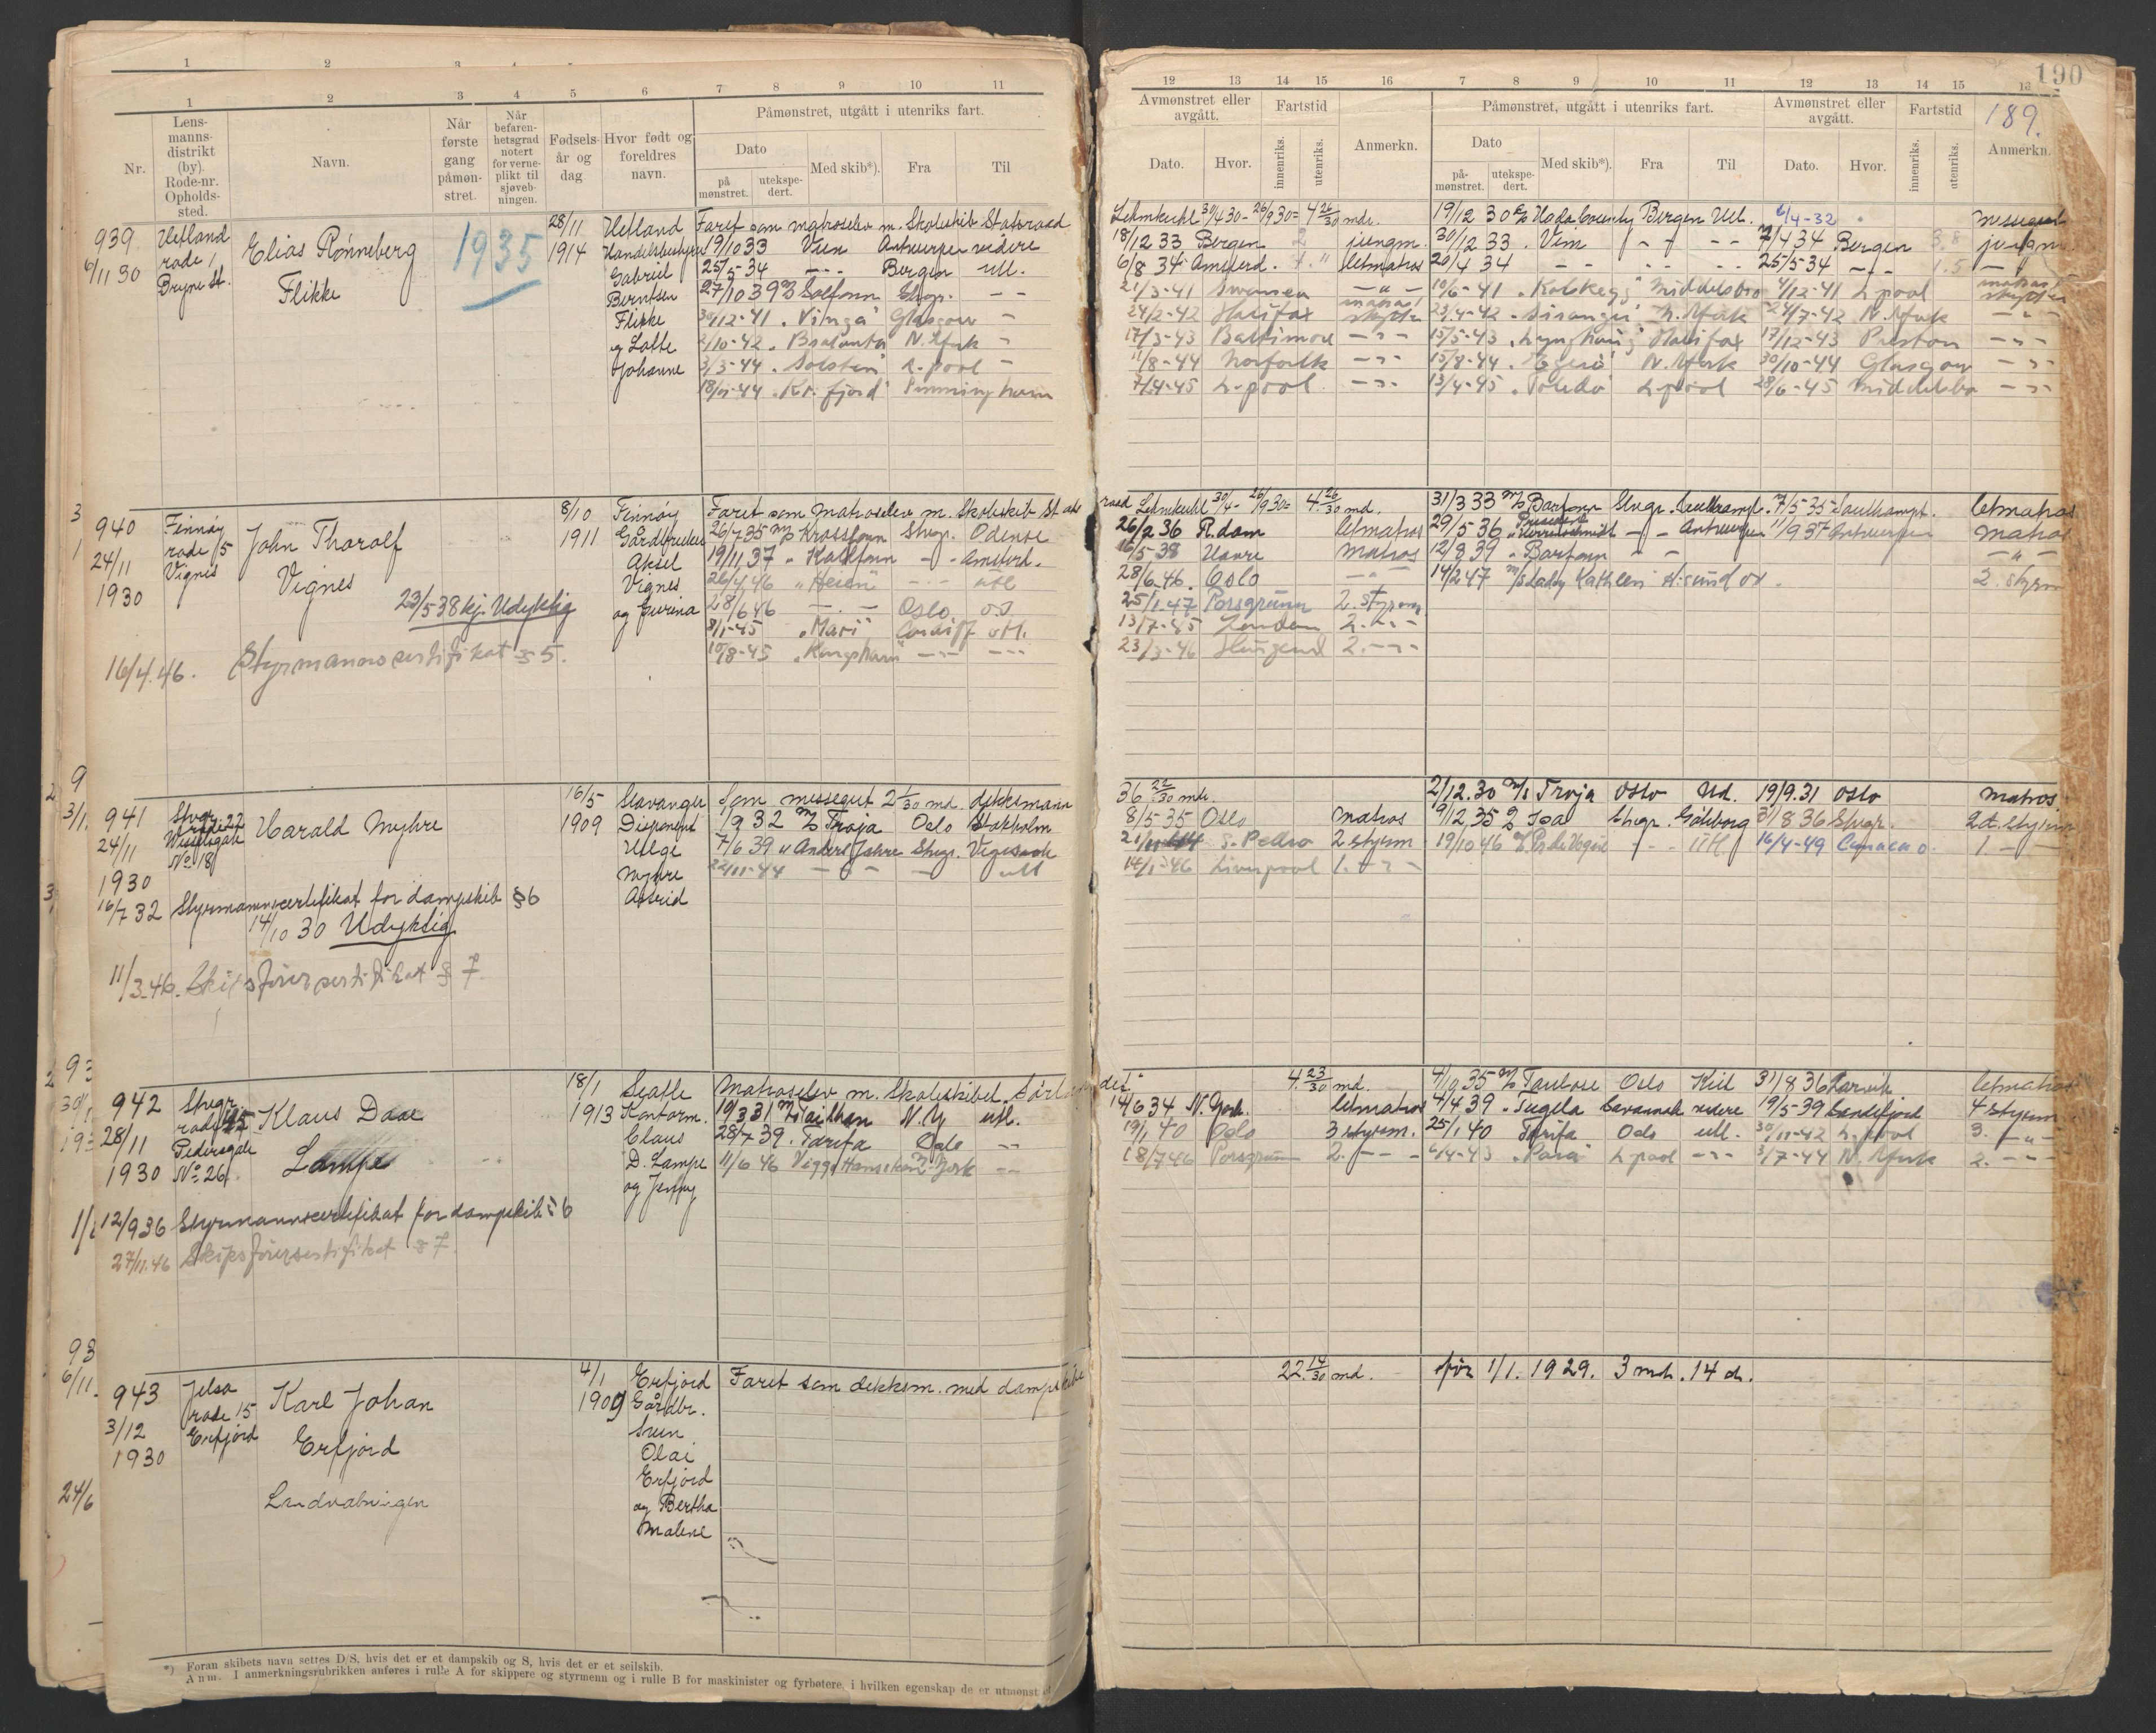 190
189.
1 2 3 4 5 6 7 8 9 10 11
Nr.
Lensmanns-distrikt (by). Rode-nr. Opholds-sted.
Navn.
Når første gang påmøn-stret.
Når befaren-hetsgrad notert for verne-plikt til sjøveb-ningen.
Fødsels-år og dag
Hvor født og foreldres navn.
Påmønstret, utgått i utenriks fart.
Dato
på mønstret.
utekspe-dert.
Med skib*).
Fra
Til
12 13 14 15 16 7 8 9 10 11 12 13 14 15
Avmønstret eller avgått.
Fartstid
Dato.
Hvor.
innenriks.
utenriks.
Anmerkn.
Påmønstret, utgått i utenriks fart.
Dato
på-mønstret.
utekspe-dert.
Med skib*).
Fra
Til
Avmønstret eller avgått.
Fartstid
Dato.
Hvor.
innenriks.
utenriks.
Anmerkn.
939 Hetland Elias Rønneberg 1935 28/11 Hetland Faret som matroselev m. Skoleskib Statsraad
6/11 30 rode 1 Flikke 1914 Handelsbestyrer 19/10 33 Vim Antwerpen videre
Bryne St. Gabriel 25/5-34 - - - Bergen utl.
Berntsen 27/10 39 Solfonn Stvgr. - -
Flikke 30/12-41 "Vinga" Glasgow -
og Lotte 2/10-42 "Brabant" N. York -
Johanne 3/3-44 "Solstein" L-pool -
18/11-44 "Kr. fjord"
Lehmkuhl 30/4 30 - 26/9 30 = 4 26/30 mdr. 19/12 30 Bergen Utl. 6/4-32
18/12 33 Bergen 2 jungm. 30/12 33 Vim - - - - 7/4 34 Bergen 3.8 jungm.
6/8 34 Amsterd. letmatros 20/4 34 - - - - 25/5 34 - - - 1.5 - " -
21/3-41 Swansea - " - 10/6-41 Middelsbro 4/12-41 L-pool matros/
24/2-42 Halifax matros/ 23/4-42 "Siranger" N. York 24/7-42 N. York - " -
17/3-43 Baltimore - " - 15/5-43 "Lynghaug" Halifax 17/12-43 Preston - " -
11/8-44 Norfolk - " - 15/8-44 "Egerö" N. York 30/10-44 Glasgow - " -
7/4-45 L-pool - " - 13/4-45 "Toledo" L-pool 28/6-45 Middelsbro - " -
940 Finnøy John Tharolf 8/10 Finnøy Faret som matroselev m. Skoleskib Stats
24/11 rode 5 Vignes 1911 Gårdbruker 26/7 35 M/S Krossfonn Stvgr. Odense
1930 Vignes Aksel 19/11 37 " Kaldfonn - " - Amsterd.
Vignes 26/4 46 "Heien" - - - utl
23/5 38 kj. Udyktig og Gurina 28/6 46 - " - Oslo o.s.
8/1-45 "Mari" Cardiff utl.
16/4.46. Styrmannssertifikat § 5. 10/8-45 - " - - " -
raad Lehmkuhl 30/4 - 26/9 30 = 4 26/30 md. 31/3 33 M/S Barfonn Stvgr. Southampt. 7/5-35 Southampt. letmatros
26/2 36 R.dam letmatros 29/5 36 - " - Antwerpen 11/9 37 Antwerpen matros
16/5-38 Havre matros 12/8 39 " Barfonn - " - - " -
28/6.46. Oslo - " - 14/2 47 M/S Lady Kathleen 2. styrm
25/1.47 Porsgrunn 2. styrm
13/7-45 London 2. - " -
23/3-46 2. - " -
941 Stvgr. Harald Myhre 16/5 Stavanger Som messegut 2 1/30 md. dekksmann
24/11 rode 22 1909 Disponent 1/9 32 M/S Troja Oslo Stokholm
1930 Wesselsgate No 18 Helge 7/6 39 " Anders Jahre Stvgr. Vegesack
Myhre 22/11-44 - " - - utl
16/7 32 Styrmannscertifikat for dampskib § 6 Astrid
14/10 30 Udyktig
11/3-46. Skipsførersertifikat § 7.
36 22/30 mdr. 2/12.30 M/S Troja Oslo Ud. 19/9.31 Oslo matros
8/5-35 Oslo matros 9/12 35 Stvgr. Göteborg 31/8 36 Stvgr. 2d. styrm
S. Pedro 2 styrm 19/10 46 - - - utl 16/4-49 Curacao. 1. - " -
14/1-46 Liverpool 1. - " -
942 Stvgr. Klaus Daae 18/1 Seatle Matroselev m. Skoleskibet Sörlandet.
28/11 rode Lampe 1913 Kontorm. 19/3 31 M/S Taiwan N.Y utl.
1930 Pedersgate No 26 Claus 28/7 39. Tarifa Oslo - " -
D. Lampe 11/6 46 Viggo Hansteen N. York - -
og Jenny
12/9 36 Styrmannscertifikat for dampskib § 6
27/11.46 Skipsførersertifikat § 7.
4. 23/30 md. 4/10 35 M/S Oslo Kiel 31/8 36 Larvik letmatros
14/6 34 N. York. letmatros 4/4 39 " Tugela Savannah videre 19/5-39 Sandefjord 4 styrm
19/1 40 Oslo 3 styrm. 25/1 40 Tarifa Oslo utl. 30/11-42 L-pool 3. - " -
18/7 46 Porsgrunn 2. - - - 6/4-43 "Para" L-pool - " - 3/7-44 N. York 2. - " -
943 Jelsa Karl Johan 4/1 Erfjord Faret som dekksm. med dampskibe
3/12 rode 15 Erfjord 1909 Gårdbr.
1930 Erfjord Svein
Olai
Erfjord
Landvæbningen og Bertha
Malene
22 14/30 md. før 1/1. 1929. 3 md. 14 d.
*) Foran skibets navn settes D/S, hvis det er et dampskib og S, hvis det er et seilskib.
Anm. I anmerkningsrubrikken anføres i rulle A for skippere og styrmenn og i rulle B for maskinister og fyrbøtere, i hvilken egenskap de er utmønst